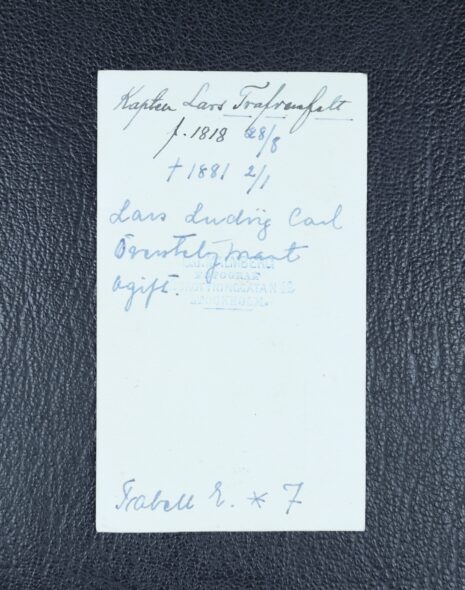 Kapten Lars Trafvenfelt
f. 1818 28/8
† 1881 2/1
Lars Ludvig Carl
Överstelöjtnant
ogift.
FOTOGRAF
STOCKHOLM
Tabell E. * 7